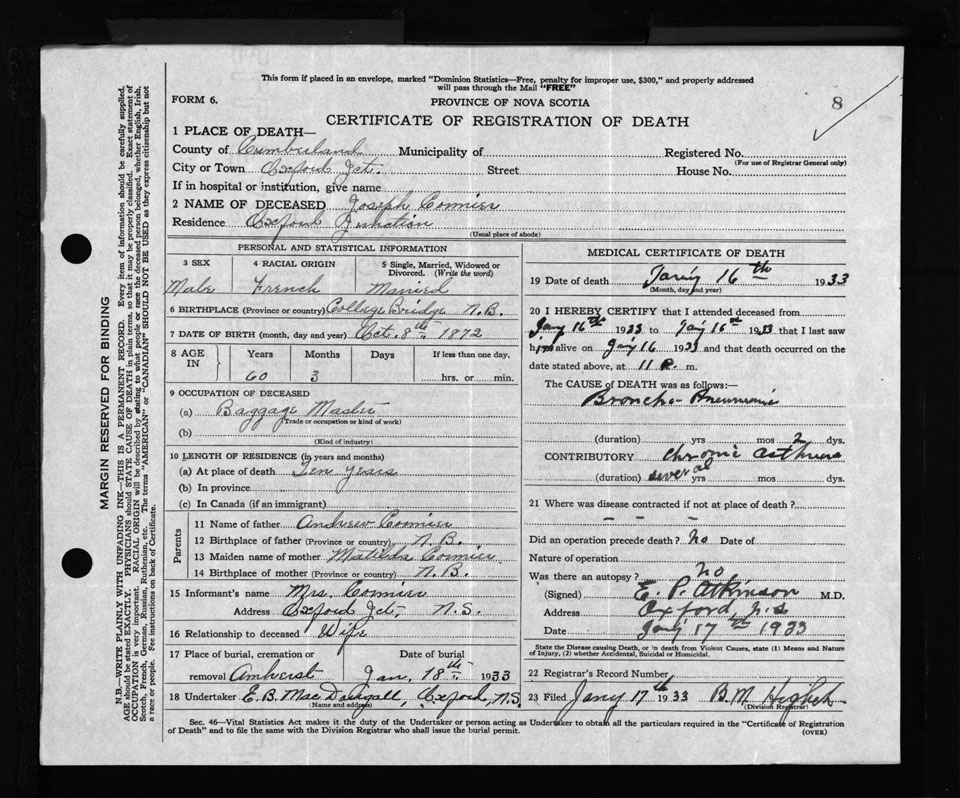 This form if placed in an envelope, marked "Dominion Statistics—Free, penalty for improper use, $300," and properly addressed
will pass through the Mail "FREE"
FORM 6.
PROVINCE OF NOVA SCOTIA
8
CERTIFICATE OF REGISTRATION OF DEATH
1 PLACE OF DEATH—
County of Cumberland Municipality of Registered No.
(For use of Registrar General only)
City or Town Oxford Jct. Street House No.
If in hospital or institution, give name
2 NAME OF DECEASED Joseph Cormier
Residence Oxford Junction
(Usual place of abode)
PERSONAL AND STATISTICAL INFORMATION
3 SEX 4 RACIAL ORIGIN 5 Single, Married, Widowed or
Divorced. (Write the word)
Male French Married
6 BIRTHPLACE (Province or country) College Bridge N.B.
7 DATE OF BIRTH (month, day and year) Oct. 8th 1872
8 AGE IN Years Months Days If less than one day,
60 3 hrs. or min.
9 OCCUPATION OF DECEASED
(a) Baggage Master
(Trade or occupation or kind of work)
(b)
(Kind of industry)
10 LENGTH OF RESIDENCE (in years and months)
(a) At place of death Ten years
(b) In province
(c) In Canada (if an immigrant)
Parents
11 Name of father Andrew Cormier
12 Birthplace of father (Province or country) N.B.
13 Maiden name of mother Matilda Cormier
14 Birthplace of mother (Province or country) N.B.
15 Informant's name Mrs. Cormier
Address Oxford Jct, N.S.
16 Relationship to deceased Wife
17 Place of burial, cremation or Date of burial
removal Amherst Jan. 18th 1933
18 Undertaker E.B. MacDougall, Oxford, N.S.
(Name and address)
MEDICAL CERTIFICATE OF DEATH
19 Date of death Jany 16th 1933
(Month, day and year)
20 I HEREBY CERTIFY that I attended deceased from
Jany 16th 1933 to Jany 16th 1933 that I last saw
him alive on Jany 16 1933 and that death occurred on the
date stated above, at 11 P. m.
The CAUSE OF DEATH was as follows:
Broncho-Pneumonia
(duration) yrs mos 2 dys.
CONTRIBUTORY Chronic asthma
(duration) several yrs mos dys.
21 Where was disease contracted if not at place of death?
— — —
Did an operation precede death? No Date of
Nature of operation
Was there an autopsy? No
(Signed) E. P. Atkinson M.D.
Address Oxford, N.S
Date Jany 17th 1933
State the Disease causing Death, or in death from Violent Causes, state (1) Means and Nature
of Injury, (2) whether Accidental, Suicidal or Homicidal.
22 Registrar's Record Number
23 Filed Jany 17th 1933 B.M.
(Division Registrar)
Sec. 46—Vital Statistics Act makes it the duty of the Undertaker or person acting as Undertaker to obtain all the particulars required in the "Certificate of Registration
of Death" and to file the same with the Division Registrar who shall issue the burial permit.
(OVER)
MARGIN RESERVED FOR BINDING
N.B.—WRITE PLAINLY WITH UNFADING INK—THIS IS A PERMANENT RECORD. Every item of information should be carefully supplied.
AGE should be stated EXACTLY. PHYSICIANS should STATE CAUSE OF DEATH in plain terms, so that it may be properly classified. Exact statement of
OCCUPATION is very important. RACIAL ORIGIN will be described by stating to what people or race the deceased person belonged, whether English, Irish,
Scotch, French, German, Russian, Ruthenian, etc. The terms "AMERICAN" or "CANADIAN" SHOULD NOT BE USED as they express citizenship but not
a race or people. See instructions on back of Certificate.